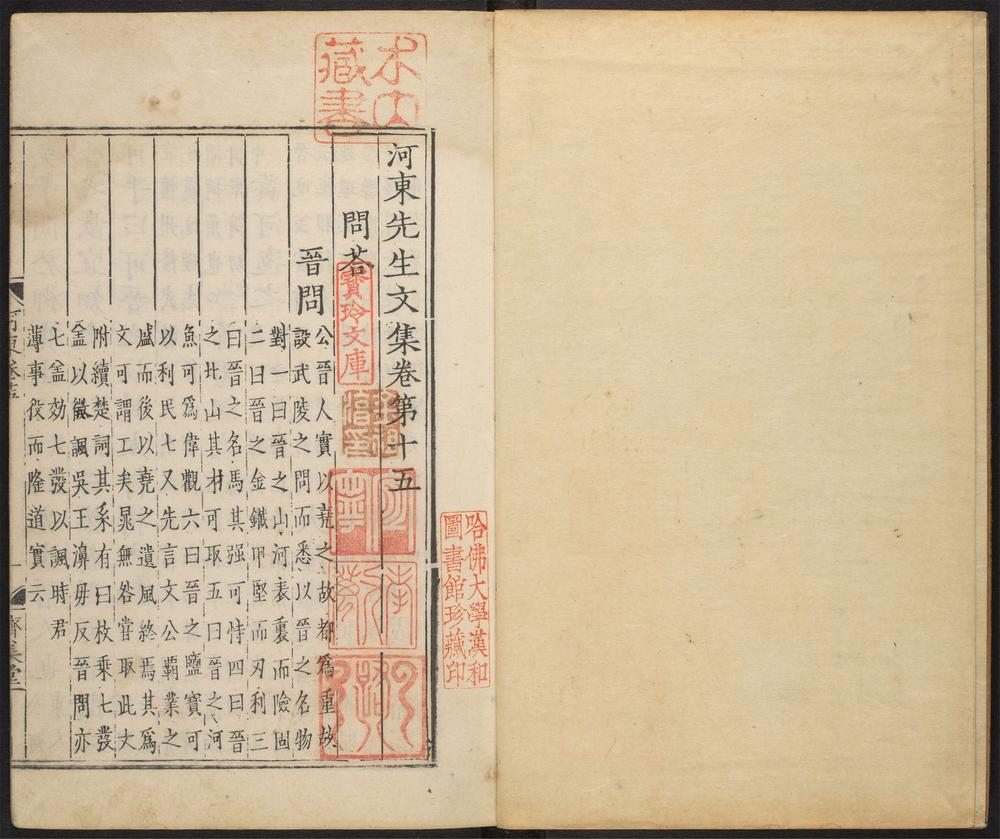 河東先生文集卷第十五
問荅
晉問
公晉人實以堯之故都爲重故
設武陵之問而悉以晉之名物
對一曰晉之山河表裏而險固
二曰晉之金鐵甲堅而刃利三
曰晉之名馬其强可恃四曰晉
之北山其材可取五曰晉之河
魚可爲偉觀六曰晉之鹽寶可
以利民七又先言文公霸業之
盛而後以堯之遺風終焉其爲
文可謂工矣晁無咎嘗取此文
附續楚詞其系有曰枚乘七發
盖以微諷吳王濞毋反晉問亦
七盖効七發以諷時君
薄事役而隆道實云
河東卷十五
濟美堂
藏書
寶玲文庫
哈佛大學漢和
圖書館珍藏印